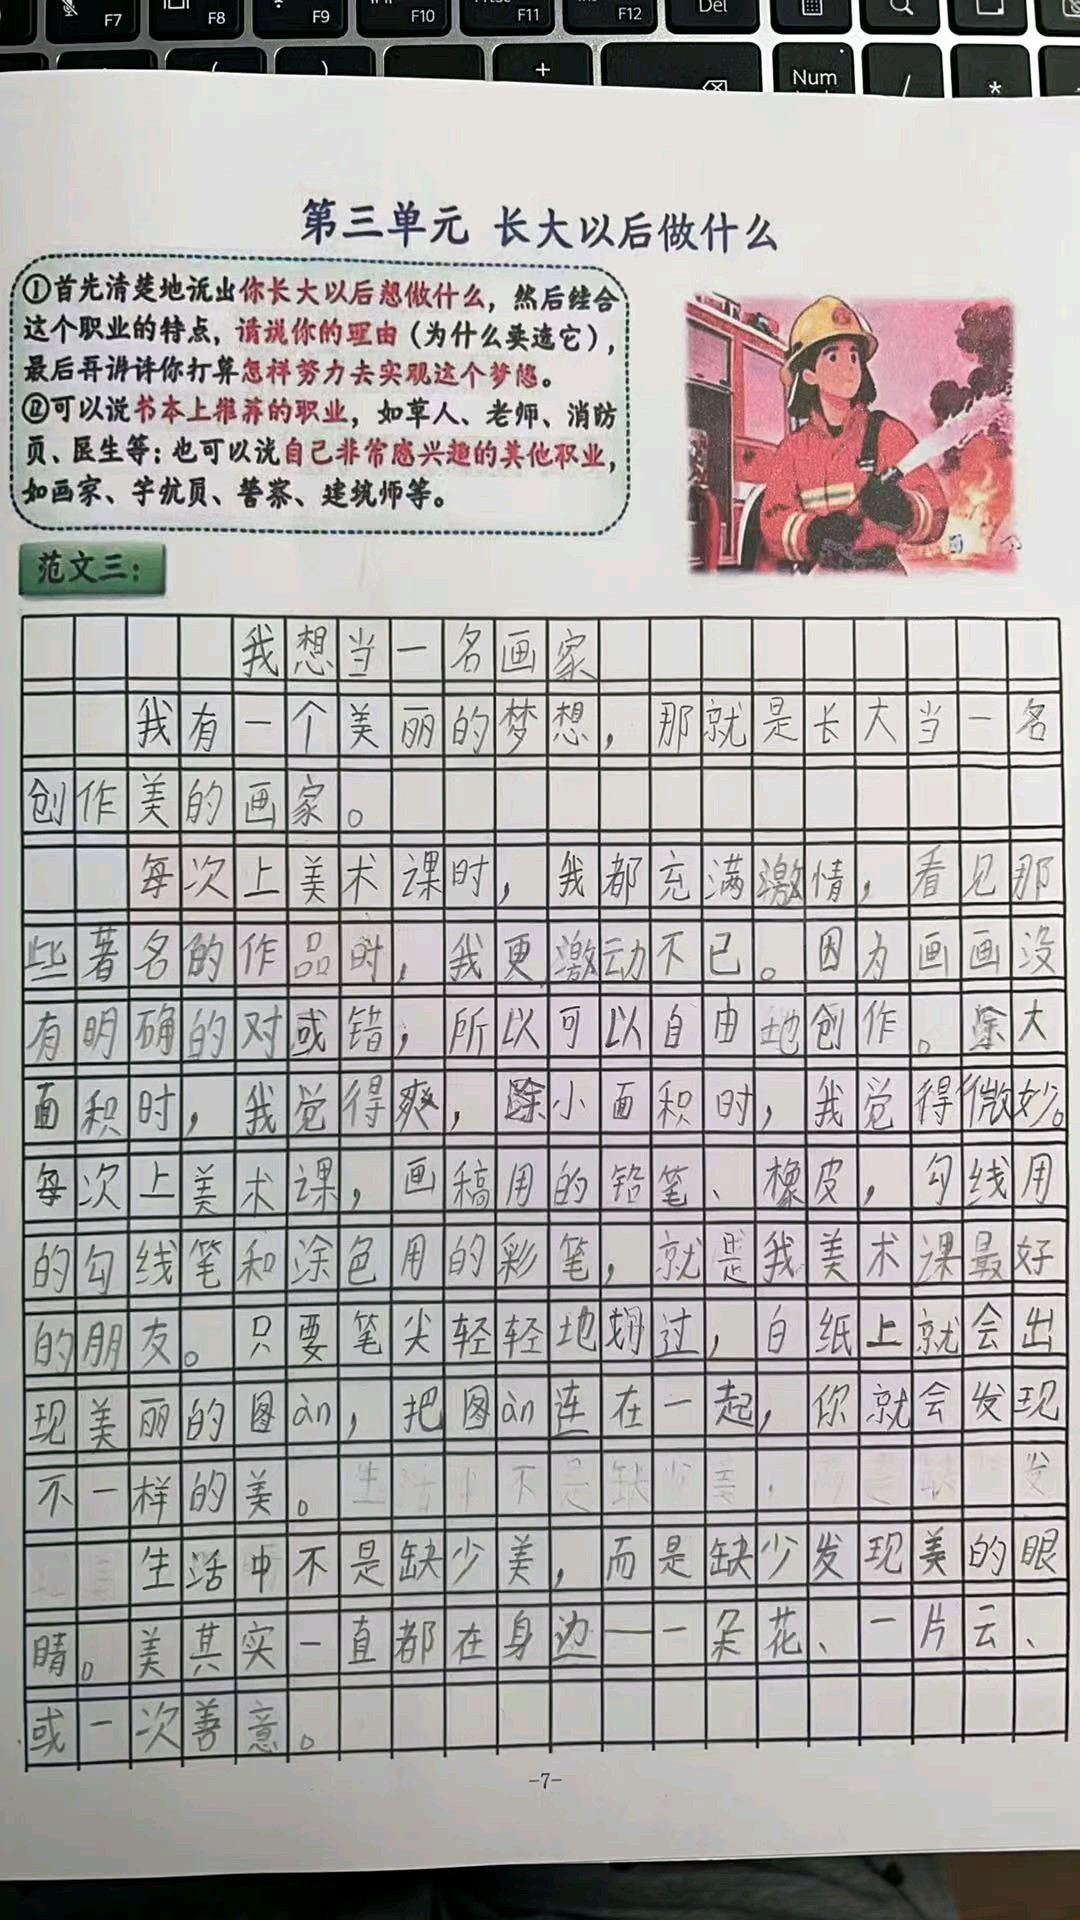 F7 F8 F9 F10 F11 F12 Del
( ) + Num / *
第三单元 长大以后做什么
①首先清楚地说出你长大以后想做什么，然后结合
这个职业的特点，请说你的理由（为什么要选它），
最后再讲讲你打算怎样努力去实现这个梦想。
②可以说书本上推荐的职业，如军人、老师、消防
员、医生等；也可以说自己非常感兴趣的其他职业，
如画家、宇航员、警察、建筑师等。
范文三：
我想当一名画家
我有一个美丽的梦想，那就是长大当一名
创作美的画家。
每次上美术课时，我都充满激情，看见那
些著名的作品时，我更激动不已。因为画画没
有明确的对或错，所以可以自由地创作。涂大
面积时，我觉得爽，涂小面积时，我觉得微妙。
每次上美术课，画稿用的铅笔、橡皮，勾线用
的勾线笔和涂色用的彩笔，就是我美术课最好
的朋友。只要笔尖轻轻地过，白纸上就会出
现美丽的图àn，把图àn连在一起，你就会发现
不一样的美。
生活中不是缺少美，而是缺少发现美的眼
睛。美其实一直都在身边——一朵花、一片云、
或一次善意。
-7-